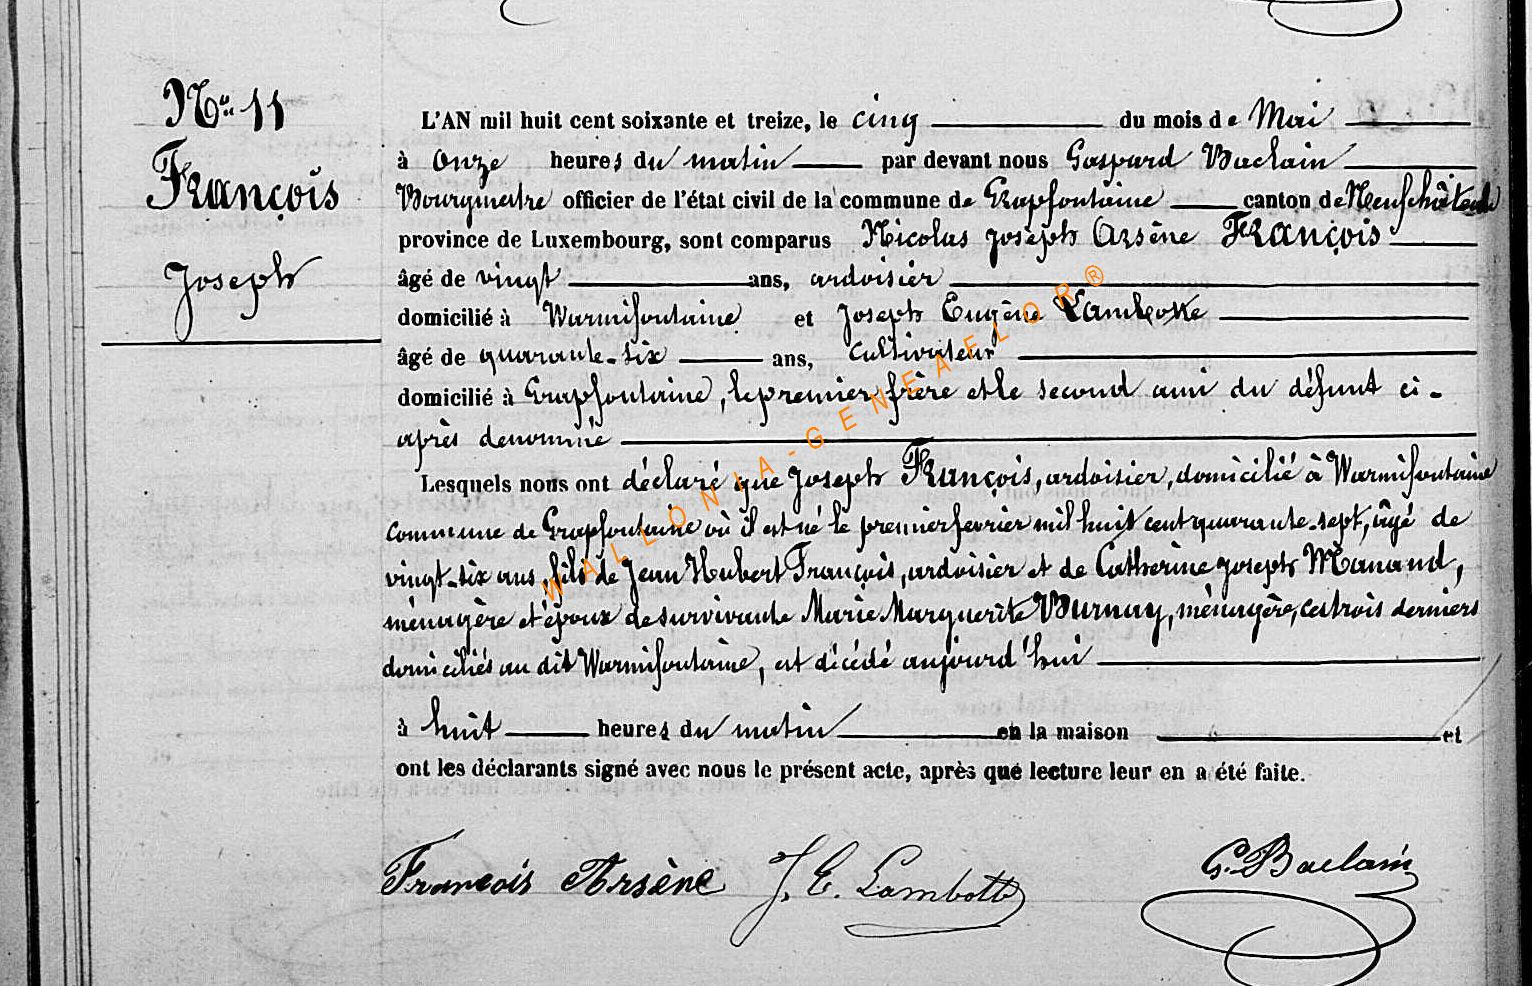 No 11
François
Joseph
L'AN mil huit cent soixante et treize, le cinq du mois de Mai
à onze heures du matin par devant nous Gaspard Baclain
Bourgmestre officier de l'état civil de la commune de Grapfontaine canton de Neufchâteau
province de Luxembourg, sont comparus Nicolas Joseph Arsène François
âgé de vingt ans, ardoisier
domicilié à Warmifontaine et Joseph Eugène Lambotte
âgé de quarante-six ans, cultivateur
domicilié à Grapfontaine, le premier frère et le second ami du défunt ci-
après dénommé
Lesquels nous ont déclaré que Joseph François, ardoisier, domicilié à Warmifontaine
commune de Grapfontaine où il est né le premier fevrier mil huit cent quarante-sept, âgé de
vingt-six ans, fils de Jean Hubert François, ardoisier et de Catherine Joseph Manand,
ménagère et époux de survivante Marie Marguerite Burnay, ménagère, ces trois derniers
domiciliés au dit Warmifontaine, est décédé aujourd'hui
à huit heures du matin en la maison et
ont les déclarants signé avec nous le présent acte, après que lecture leur en a été faite.
François Arsène J. E. Lambotte G. Baclain
WALLONIA-GENEAFLOR®